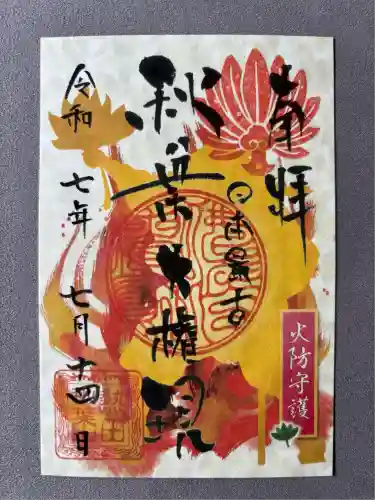 奉拝
日本最古
秋葉大権現
令和七年七月十四日
火防守護